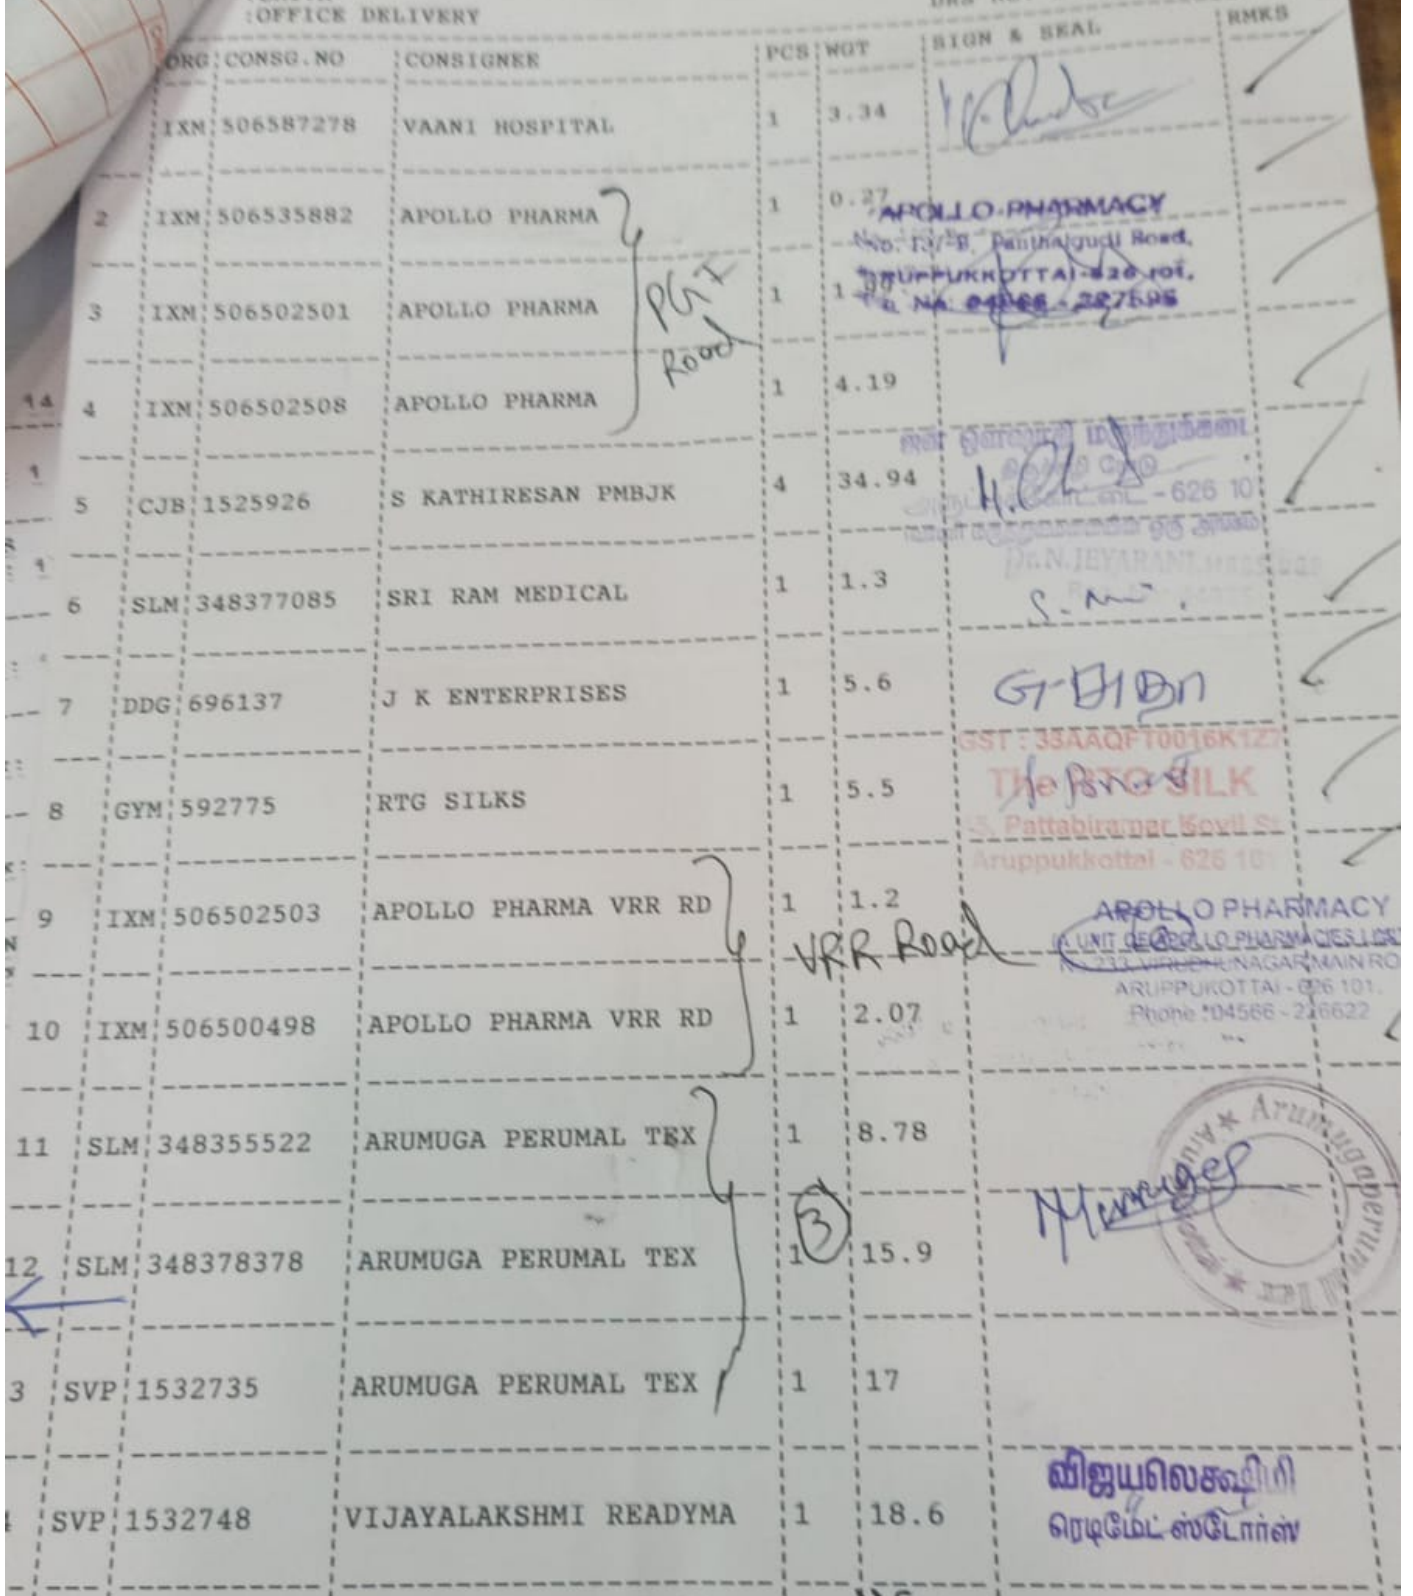 :OFFICE DELIVERY
ORG CONSG.NO CONSIGNEE PCS WGT SIGN & SEAL RMKS
IXM 506587278 VAANI HOSPITAL 1 3.34
2 IXM 506535882 APOLLO PHARMA 1 0.27
APOLLO PHARMACY
Panthalgudi Road,
ARUPPUKKOTTAI-626 101.
3 IXM 506502501 APOLLO PHARMA 1
04566 - 227595
PGI
Road
4 IXM 506502508 APOLLO PHARMA 1 4.19
5 CJB 1525926 S KATHIRESAN PMBJK 4 34.94
- 626 10
Dr.N.JEYARANI
6 SLM 348377085 SRI RAM MEDICAL 1 1.3
7 DDG 696137 J K ENTERPRISES 1 5.6
GST : 33AAQFT0016K1Z7
8 GYM 592775 RTG SILKS 1 5.5
The RTG SILK
Pattabiramar Kovil St
Aruppukkottai - 626 101
9 IXM 506502503 APOLLO PHARMA VRR RD 1 1.2
VRR Road
APOLLO PHARMACY
UNIT OF APOLLO PHARMACIES
No 233, VIRUDHUNAGAR MAIN RO
ARUPPUKOTTAI - 626 101.
Phone : 04566 - 226622
10 IXM 506500498 APOLLO PHARMA VRR RD 1 2.07
11 SLM 348355522 ARUMUGA PERUMAL TEX 1 8.78
Arumugaperumal Tex
3
12 SLM 348378378 ARUMUGA PERUMAL TEX 1 15.9
3 SVP 1532735 ARUMUGA PERUMAL TEX 1 17
SVP 1532748 VIJAYALAKSHMI READYMA 1 18.6
விஜயலெக்ஷ்மி
ரெடிமேட் ஸ்டோர்ஸ்